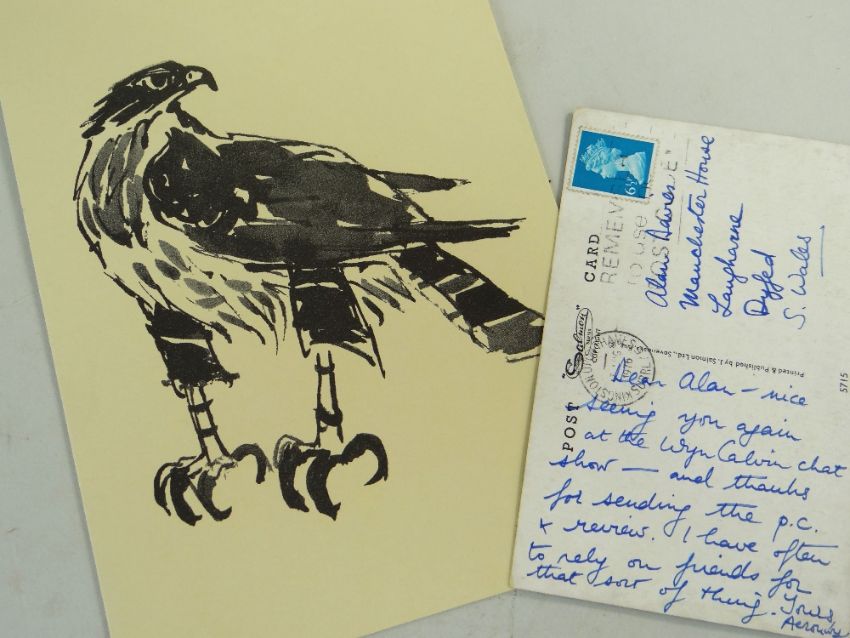 6½
REMEMBER
TO USE
POSTCODE
POST CARD
"Salmon"
COPYRIGHT
Printed & Published by J. Salmon Ltd., Sevenoaks
5715
KINGSTON UPON THAMES
SURREY
Alan Davies
Manchester House
Laugharne
Dyfed
S. Wales
Dear Alan – nice
seeing you again
at the Wyn Calvin chat
show – and thanks
for sending the p.c.
& review. I have often
to rely on friends for
that sort of thing. Yours,
Aeronwy